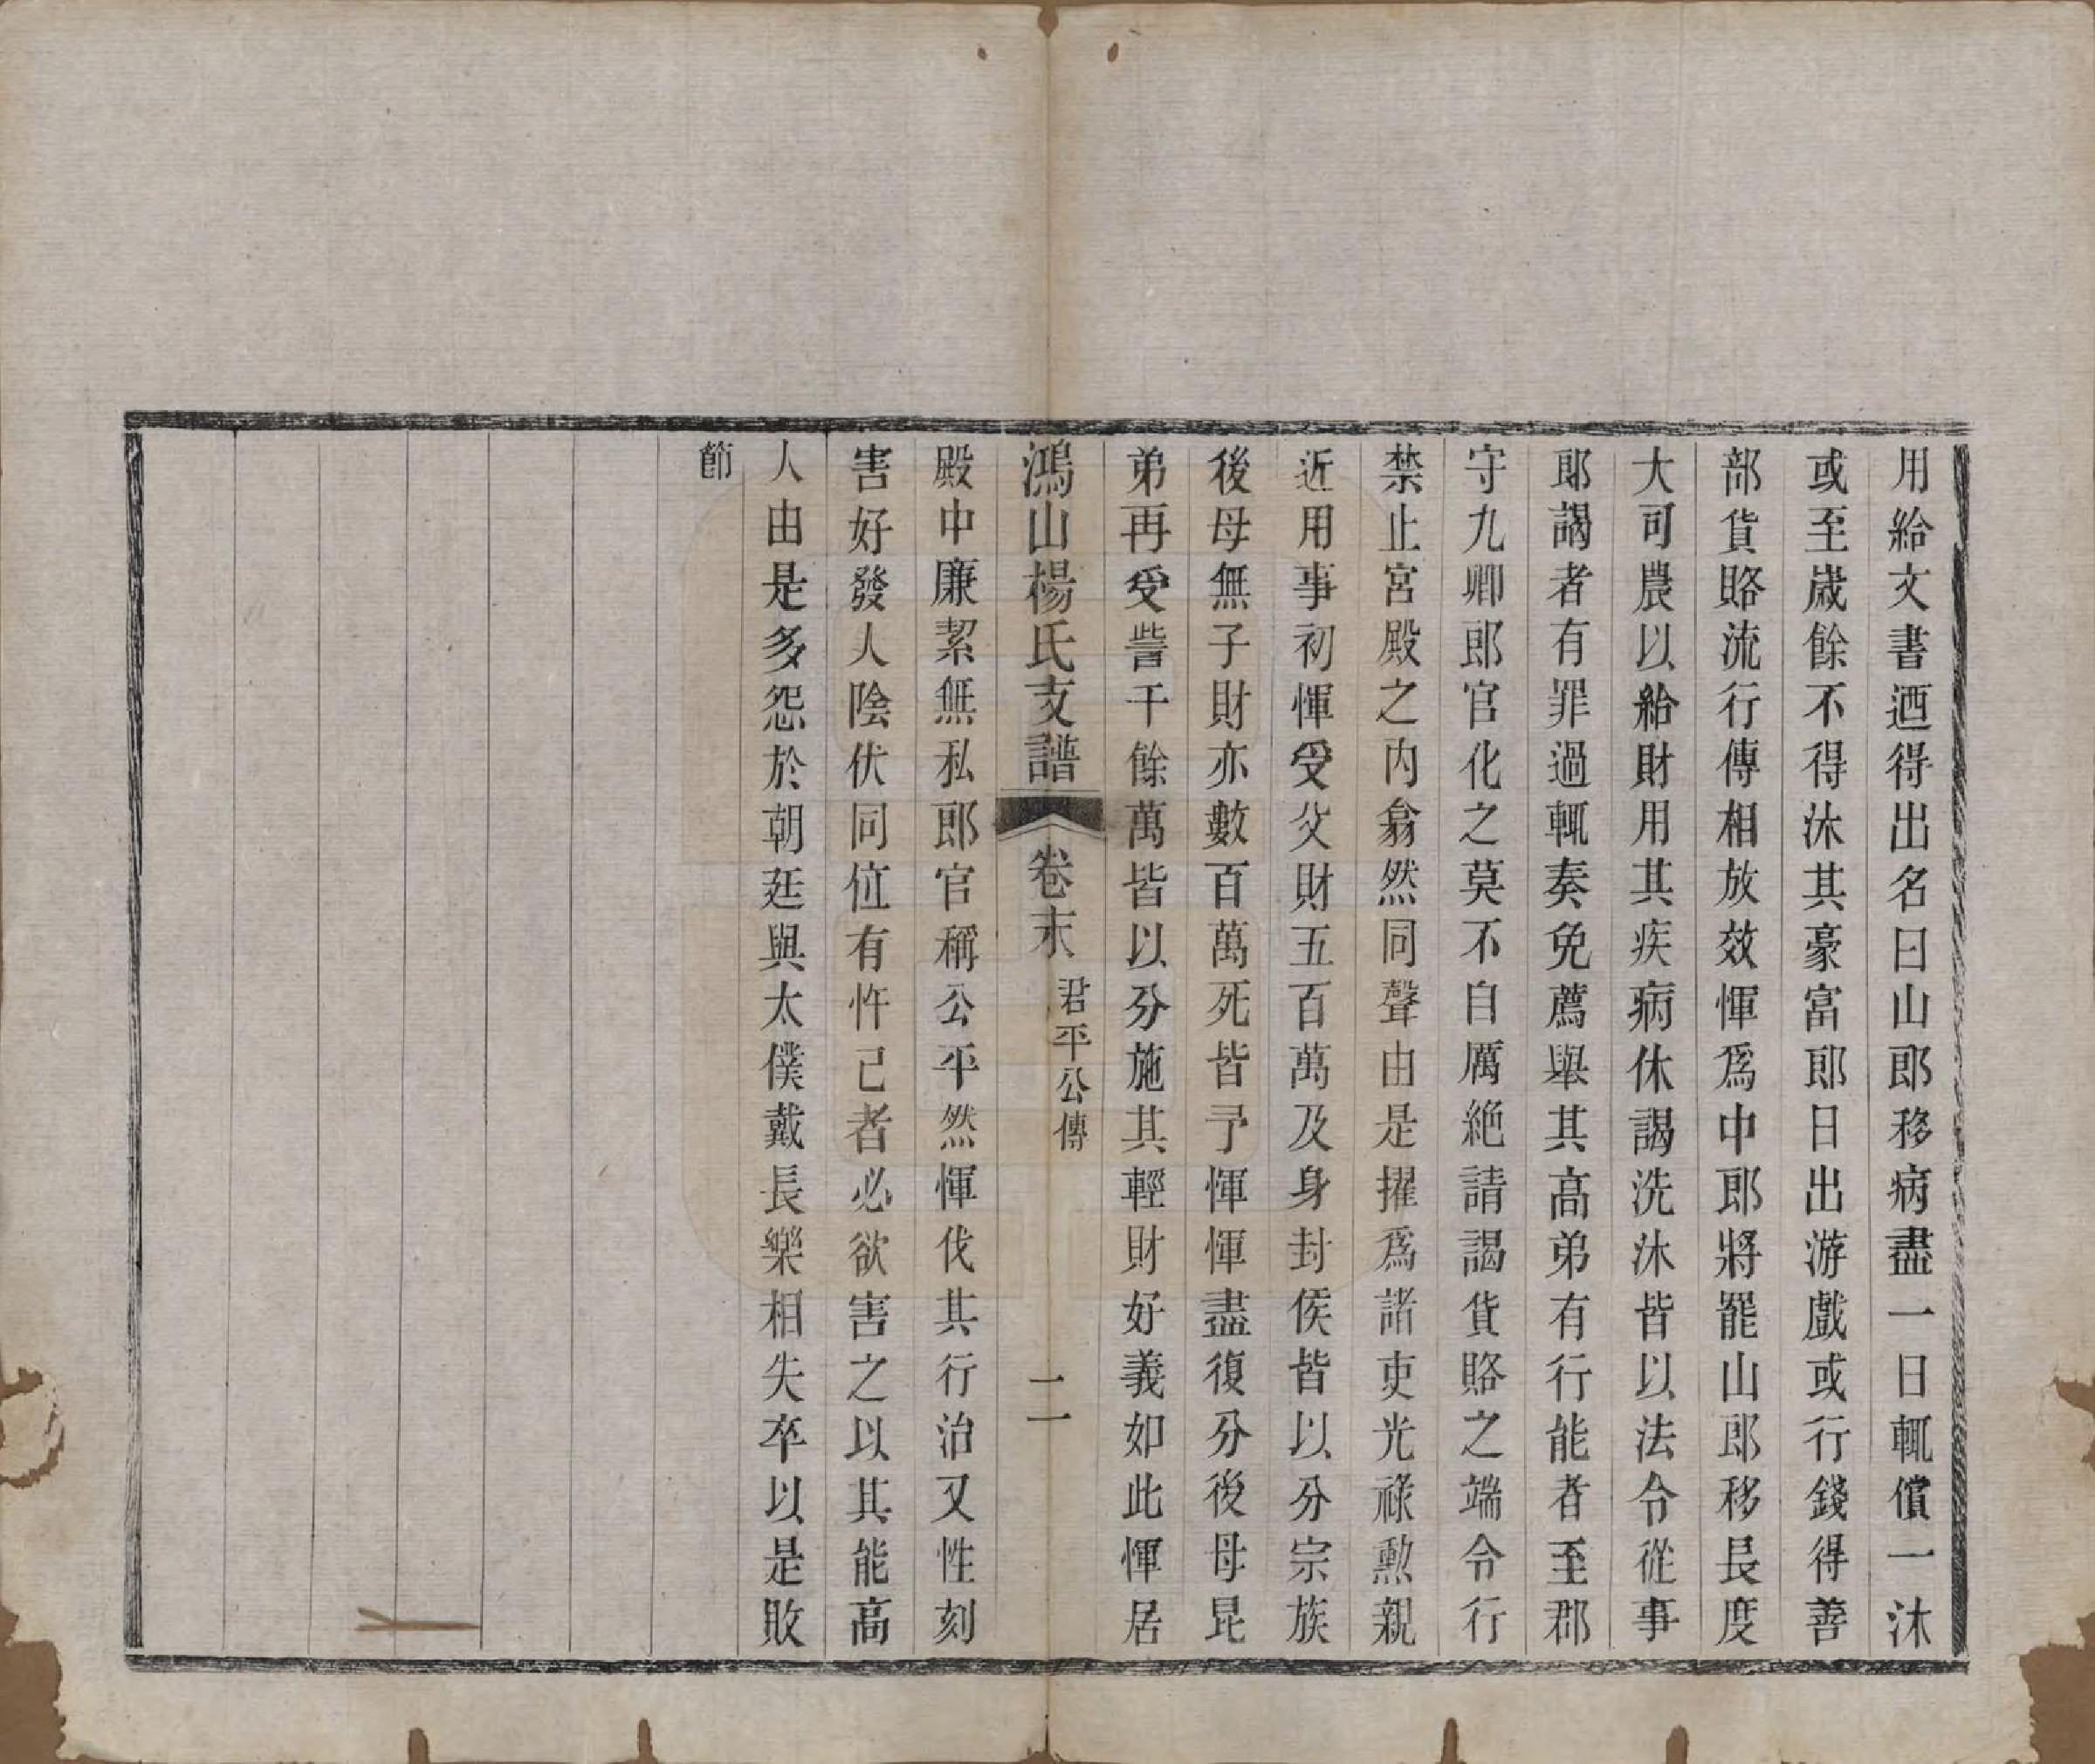 用給文書迺得出名曰山郎移病盡一日輒償一沐
或至歲餘不得沐其豪富郎日出游戲或行錢得善
部貨賂流行傳相放效惲爲中郎將罷山郎移長度
大司農以給財用其疾病休謁洗沐皆以法令從事
郎謁者有罪過輒奏免薦舉其高弟有行能者至郡
守九卿郎官化之莫不自厲絶請謁貨賂之端令行
禁止宮殿之内翕然同聲由是擢爲諸吏光祿勲親
近用事初惲受父財五百萬及身封侯皆以分宗族
後母無子財亦數百萬死皆予惲惲盡復分後母昆
弟再受訾千餘萬皆以分施其輕財好義如此惲居
鴻山楊氏支譜 卷末 君平公傳 二
殿中廉絜無私郎官稱公平然惲伐其行治又性刻
害好發人陰伏同位有忤己者必欲害之以其能高
人由是多怨於朝廷與太僕戴長樂相失卒以是敗
節